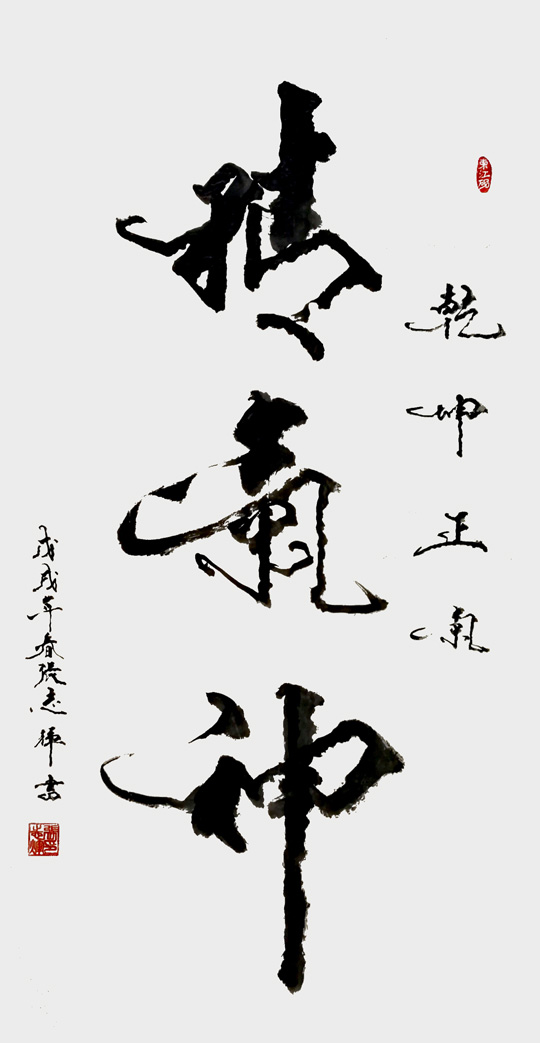 東江硯
乾坤正氣
精氣神
戊戌年春張志輝書